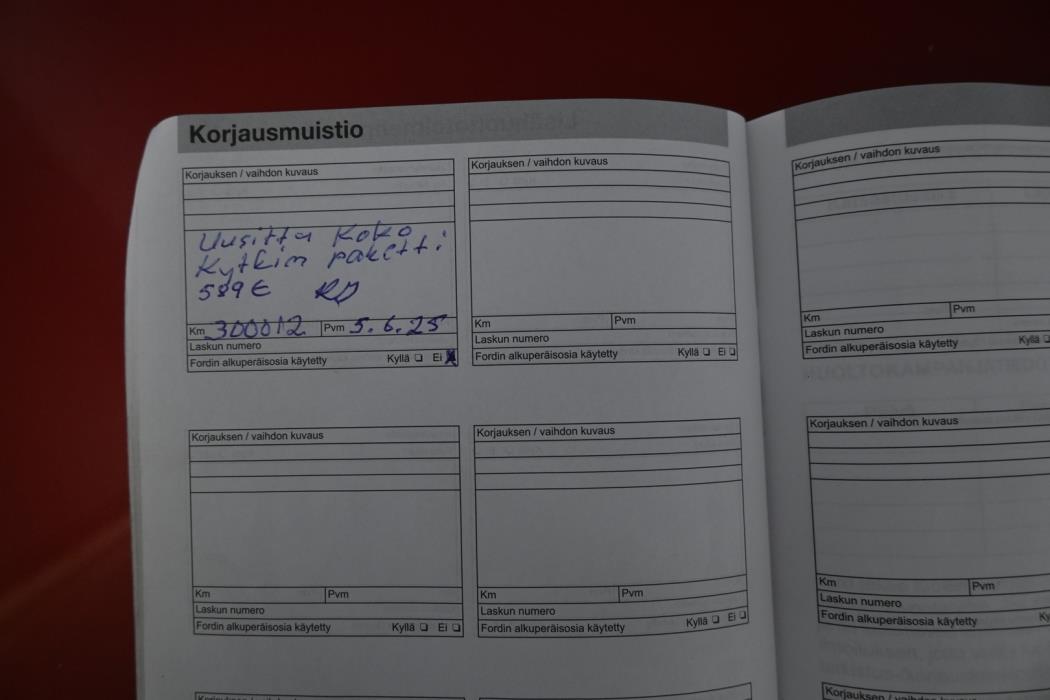 Korjausmuistio
Korjauksen / vaihdon kuvaus
Uusittu koko
Kytkin paketti
589€ RD
Km 300012 Pvm 5.6.25
Laskun numero
Fordin alkuperäisosia käytetty Kyllä ❏ Ei ❏
Korjauksen / vaihdon kuvaus
Km Pvm
Laskun numero
Fordin alkuperäisosia käytetty Kyllä ❏ Ei ❏
Korjauksen / vaihdon kuvaus
Km Pvm
Laskun numero
Fordin alkuperäisosia käytetty Kyllä ❏
Korjauksen / vaihdon kuvaus
Km Pvm
Laskun numero
Fordin alkuperäisosia käytetty Kyllä ❏ Ei ❏
Korjauksen / vaihdon kuvaus
Km Pvm
Laskun numero
Fordin alkuperäisosia käytetty Kyllä ❏ Ei ❏
Korjauksen / vaihdon kuvaus
Km Pvm
Laskun numero
Fordin alkuperäisosia käytetty Ky
Korjauksen / vaihdon kuvaus